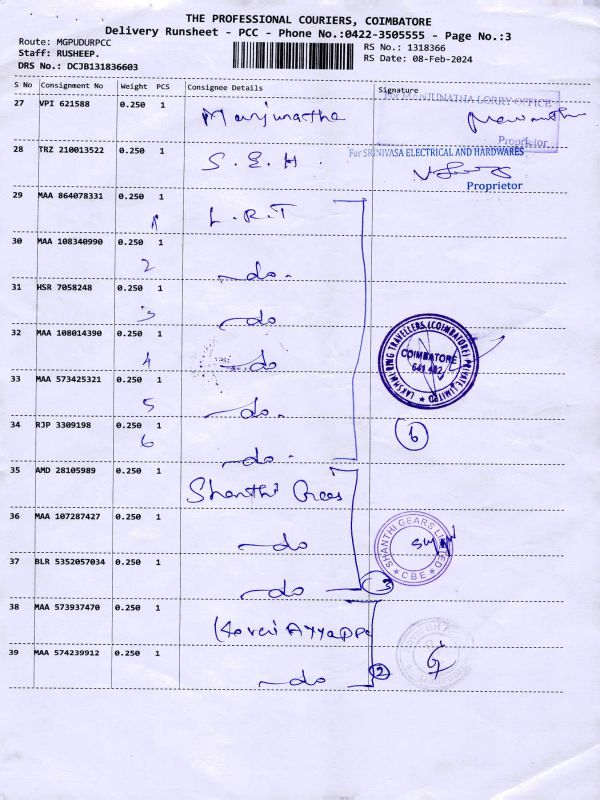 THE PROFESSIONAL COURIERS, COIMBATORE
Delivery Runsheet - PCC - Phone No.:0422-3505555 - Page No.:3
Route: MGPUDURPCC
RS No.: 1318366
Staff: RUSHEEP.
RS Date: 08-Feb-2024
DRS No.: DCJB131836603
S No Consignment No Weight PCS Consignee Details Signature
27 VPI 621588 0.250 1 Manjunatha For MANJUNATHA LORRY OFFICE
Proprietor
28 TRZ 210013522 0.250 1 S.E.H. For SRINIVASA ELECTRICAL AND HARDWARES
Proprietor
29 MAA 864078331 0.250 1 L.R.T
1
30 MAA 108340990 0.250 1 do.
2
31 HSR 7058248 0.250 1 do
3
32 MAA 108014390 0.250 1 do
4
LAKSHMI RING TRAVELLERS (COIMBATORE) PRIVATE LIMITED
COIMBATORE
641 402
33 MAA 573425321 0.250 1 do.
5
34 RJP 3309198 0.250 1 do.
6
6
35 AMD 28105989 0.250 1 Shanthi Gears
36 MAA 107287427 0.250 1 do
SHANTHI GEARS LIMITED
CBE
37 BLR 5352057034 0.250 1 do 3
38 MAA 573937470 0.250 1 Koveri Ayyappa
39 MAA 574239912 0.250 1 do 2